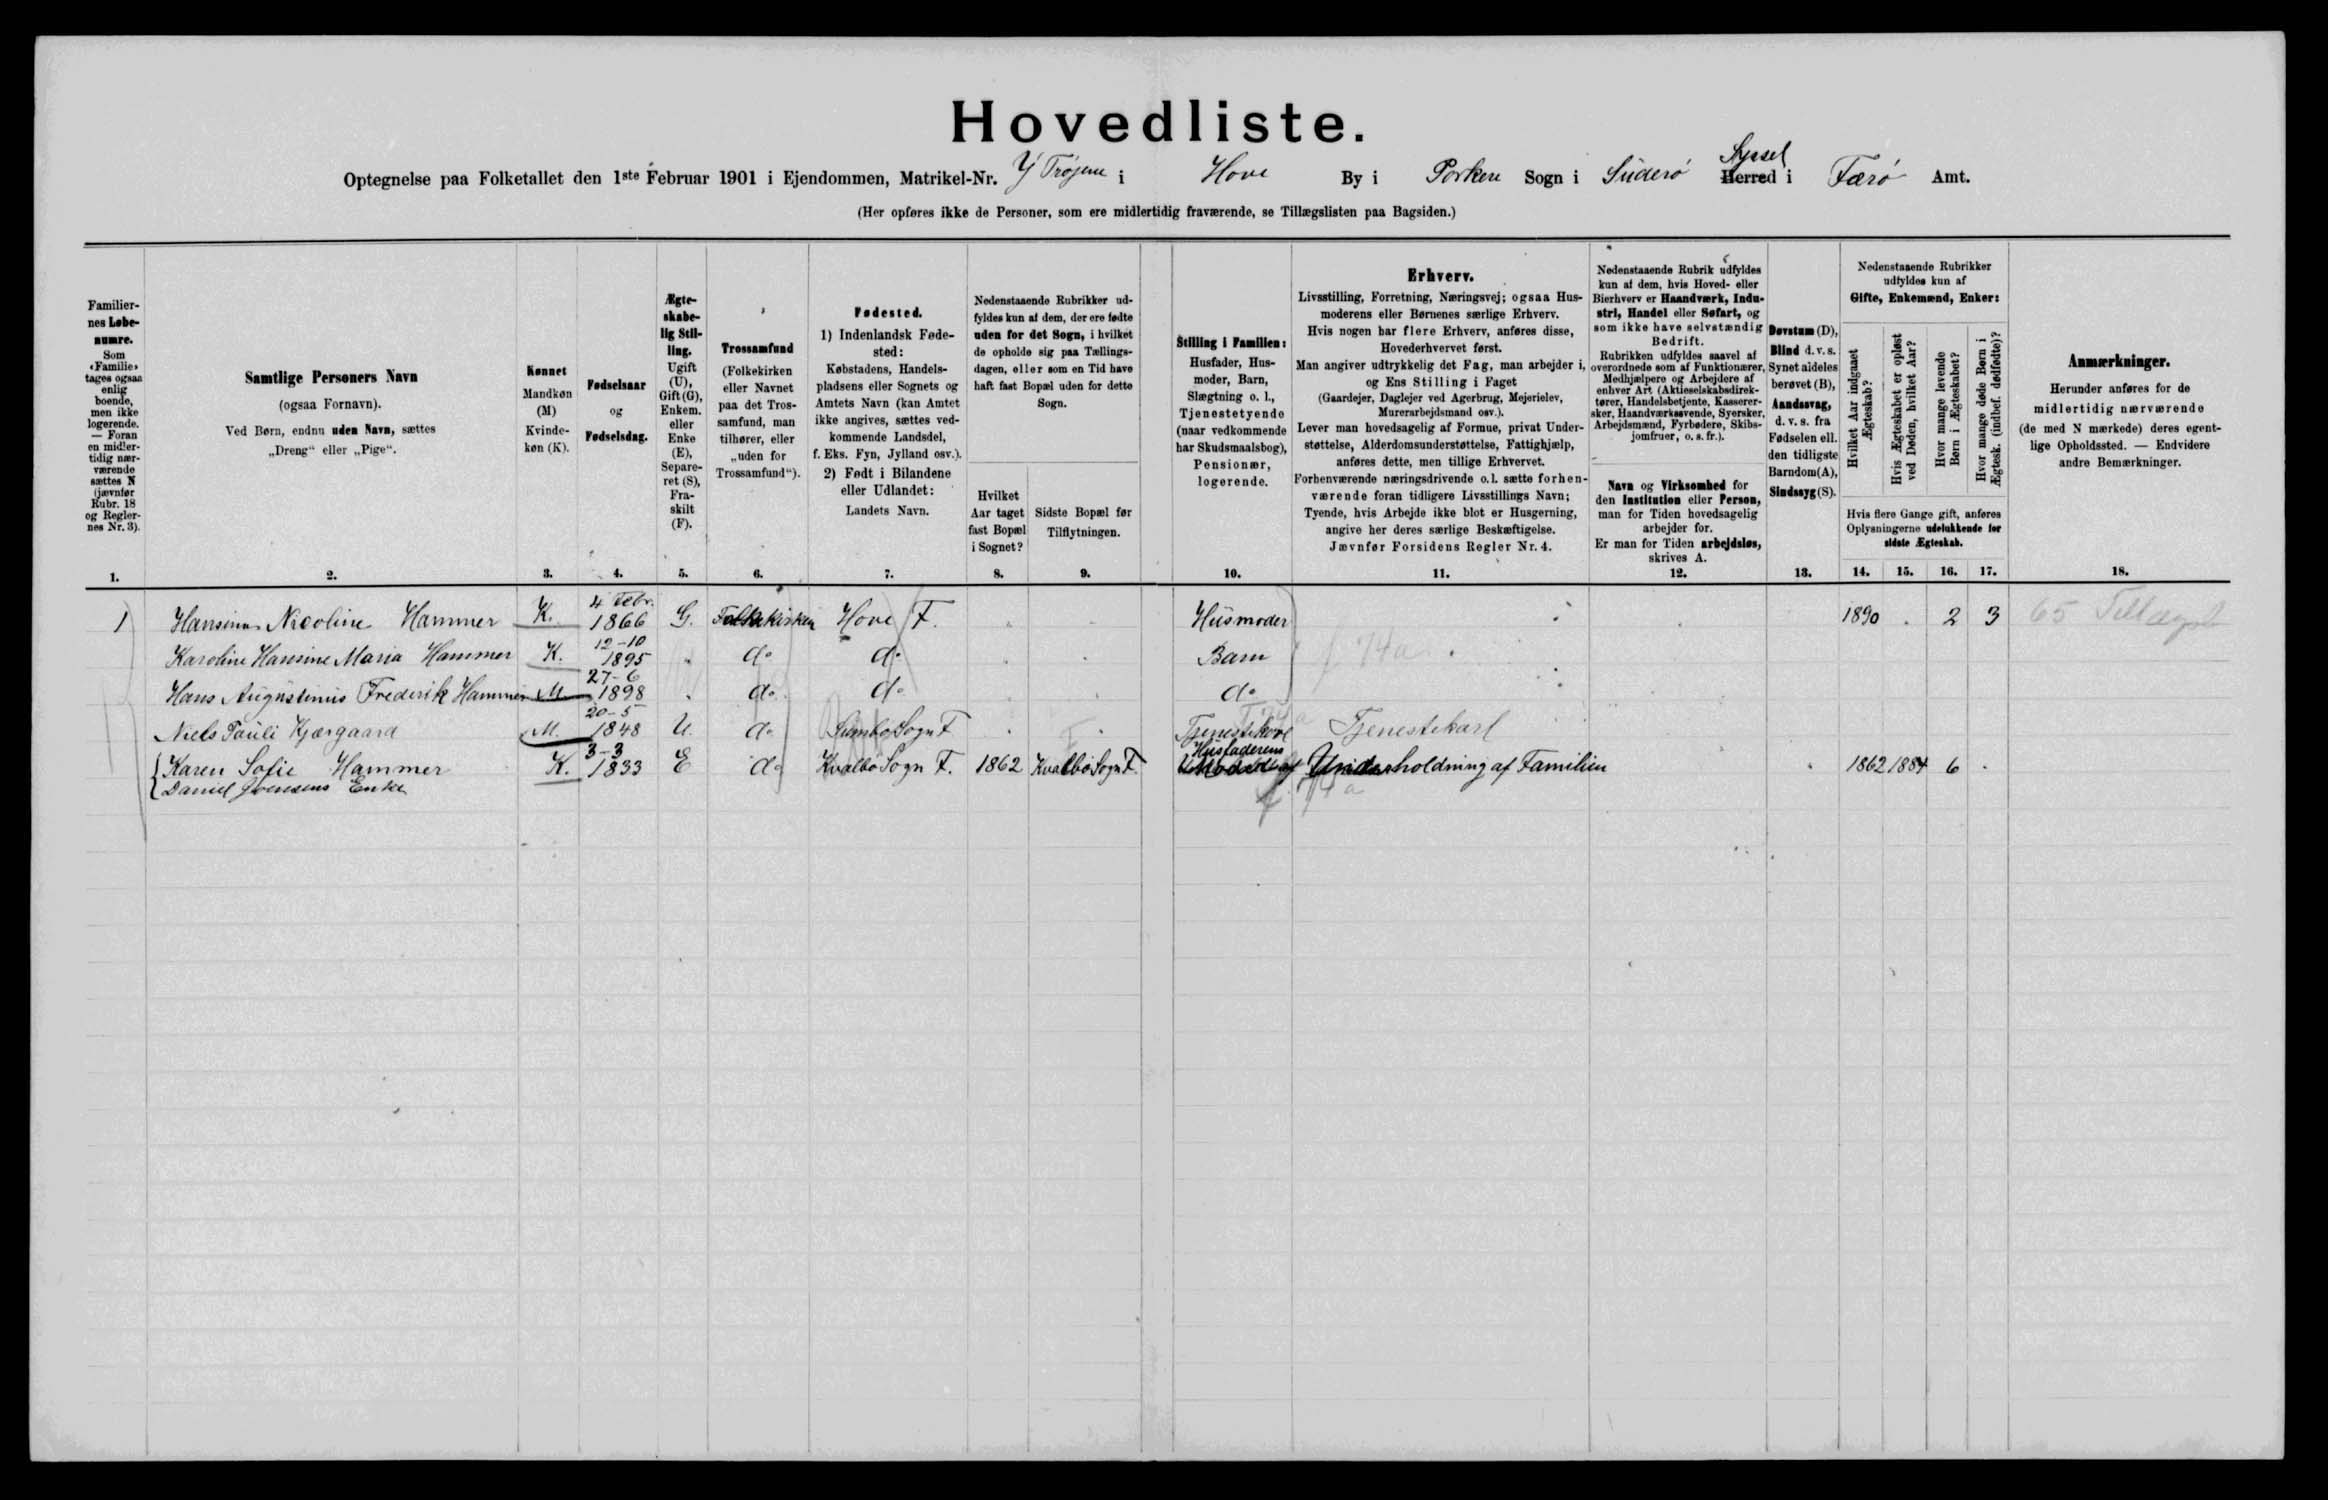 Hovedliste.
Optegnelse paa Folketallet den 1ste Februar 1901 i Ejendommen, Matrikel-Nr. Y Trøjene i Hove By i Porkere Sogn i Suderø Syssel Herred i Færø Amt.
(Her opføres ikke de Personer, som ere midlertidig fraværende, se Tillægslisten paa Bagsiden.)
Familier-
nes Løbe-
numre.
Som
«Familie»
tages ogsaa
enlig
boende,
men ikke
logerende.
— Foran
en midler-
tidig nær-
værende
sættes N
(jævnfør
Rubr. 18
og Regler-
nes Nr. 3).
1.
Samtlige Personers Navn
(ogsaa Fornavn).
Ved Børn, endnu uden Navn, sættes
„Dreng“ eller „Pige“.
2.
Kønnet
Mandkøn
(M)
Kvinde-
køn (K).
3.
Fødselsaar
og
Fødselsdag.
4.
Ægte-
skabe-
lig Stil-
ling.
Ugift
(U),
Gift (G),
Enkem.
eller
Enke
(E),
Separe-
ret (S),
Fra-
skilt
(F).
5.
Trossamfund
(Folkekirken
eller Navnet
paa det Tros-
samfund, man
tilhører, eller
„uden for
Trossamfund“).
6.
Fødested.
1) Indenlandsk Føde-
sted:
Købstadens, Handels-
pladsens eller Sognets og
Amtets Navn (kan Amtet
ikke angives, sættes ved-
kommende Landsdel,
f. Eks. Fyn, Jylland osv.).
2) Født i Bilandene
eller Udlandet:
Landets Navn.
7.
Nedenstaaende Rubrikker ud-
fyldes kun af dem, der ere fødte
uden for det Sogn, i hvilket
de opholde sig paa Tællings-
dagen, eller som en Tid have
haft fast Bopæl uden for dette
Sogn.
Hvilket
Aar taget
fast Bopæl
i Sognet?
8.
Sidste Bopæl før
Tilflytningen.
9.
Stilling i Familien:
Husfader, Hus-
moder, Barn,
Slægtning o. l.,
Tjenestetyende
(naar vedkommende
har Skudsmaalsbog),
Pensionær,
logerende.
10.
Erhverv.
Livsstilling, Forretning, Næringsvej; ogsaa Hus-
moderens eller Børnenes særlige Erhverv.
Hvis nogen har flere Erhverv, anføres disse,
Hovederhvervet først.
Man angiver udtrykkelig det Fag, man arbejder i,
og Ens Stilling i Faget
(Gaardejer, Daglejer ved Agerbrug, Mejerielev,
Murerarbejdsmand osv.).
Lever man hovedsagelig af Formue, privat Under-
støttelse, Alderdomsunderstøttelse, Fattighjælp,
anføres dette, men tillige Erhvervet.
Forhenværende næringsdrivende o. l. sætte forhen-
værende foran tidligere Livsstillings Navn;
Tyende, hvis Arbejde ikke blot er Husgerning,
angive her deres særlige Beskæftigelse.
Jævnfør Forsidens Regler Nr. 4.
11.
Nedenstaaende Rubrik udfyldes
kun af dem, hvis Hoved- eller
Bierhverv er Haandværk, Indu-
stri, Handel eller Søfart, og
som ikke have selvstændig
Bedrift.
Rubrikken udfyldes saavel af
overordnede som af Funktionærer,
Medhjælpere og Arbejdere af
enhver Art (Aktieselskabsdirek-
tører, Handelsbetjente, Kasserer-
sker, Haandværkssvende, Syersker,
Arbejdsmænd, Fyrbødere, Skibs-
jomfruer, o. s. fr.).
Navn og Virksomhed for
den Institution eller Person,
man for Tiden hovedsagelig
arbejder for.
Er man for Tiden arbejdsløs,
skrives A.
12.
Døvstum (D),
Blind d. v. s.
Synet aldeles
berøvet (B),
Aandssvag,
d. v. s. fra
Fødselen ell.
den tidligste
Barndom (A),
Sindssyg (S).
13.
Nedenstaaende Rubrikker
udfyldes kun af
Gifte, Enkemænd, Enker:
Hvilket Aar indgaaet
Ægteskab?
Hvis Ægteskabet er opløst
ved Døden, hvilket Aar?
Hvor mange levende
Børn i Ægteskabet?
Hvor mange døde Børn i
Ægtesk. (indbef. dødfødte)?
Hvis flere Gange gift, anføres
Oplysningerne udelukkende for
sidste Ægteskab.
14. 15. 16. 17.
Anmærkninger.
Herunder anføres for de
midlertidig nærværende
(de med N mærkede) deres egent-
lige Opholdssted. — Endvidere
andre Bemærkninger.
18.
1 Hansina Nicoline Hammer K. 4 Febr. 1866 G. Folkekirken Hove F. Husmoder 1890 . 2 3 65
Karoline Hansine Maria Hammer K. 12-10 1895 do do Barn 74a
Hans Augustinus Frederik Hammer M 27-6 1898 do do do
Niels Pauli Kjærgaard M. 20-5 1848 U. do Sumbø Sogn F Tjenestekarl Tjenestekarl
Karen Sofie Hammer K. 3-3 1833 E do Kvalbø Sogn F. 1862 Kvalbø Sogn F. Husfaderens Moder Underholdning af Familien 1862 1884 6 .
Daniel Joensens Enke